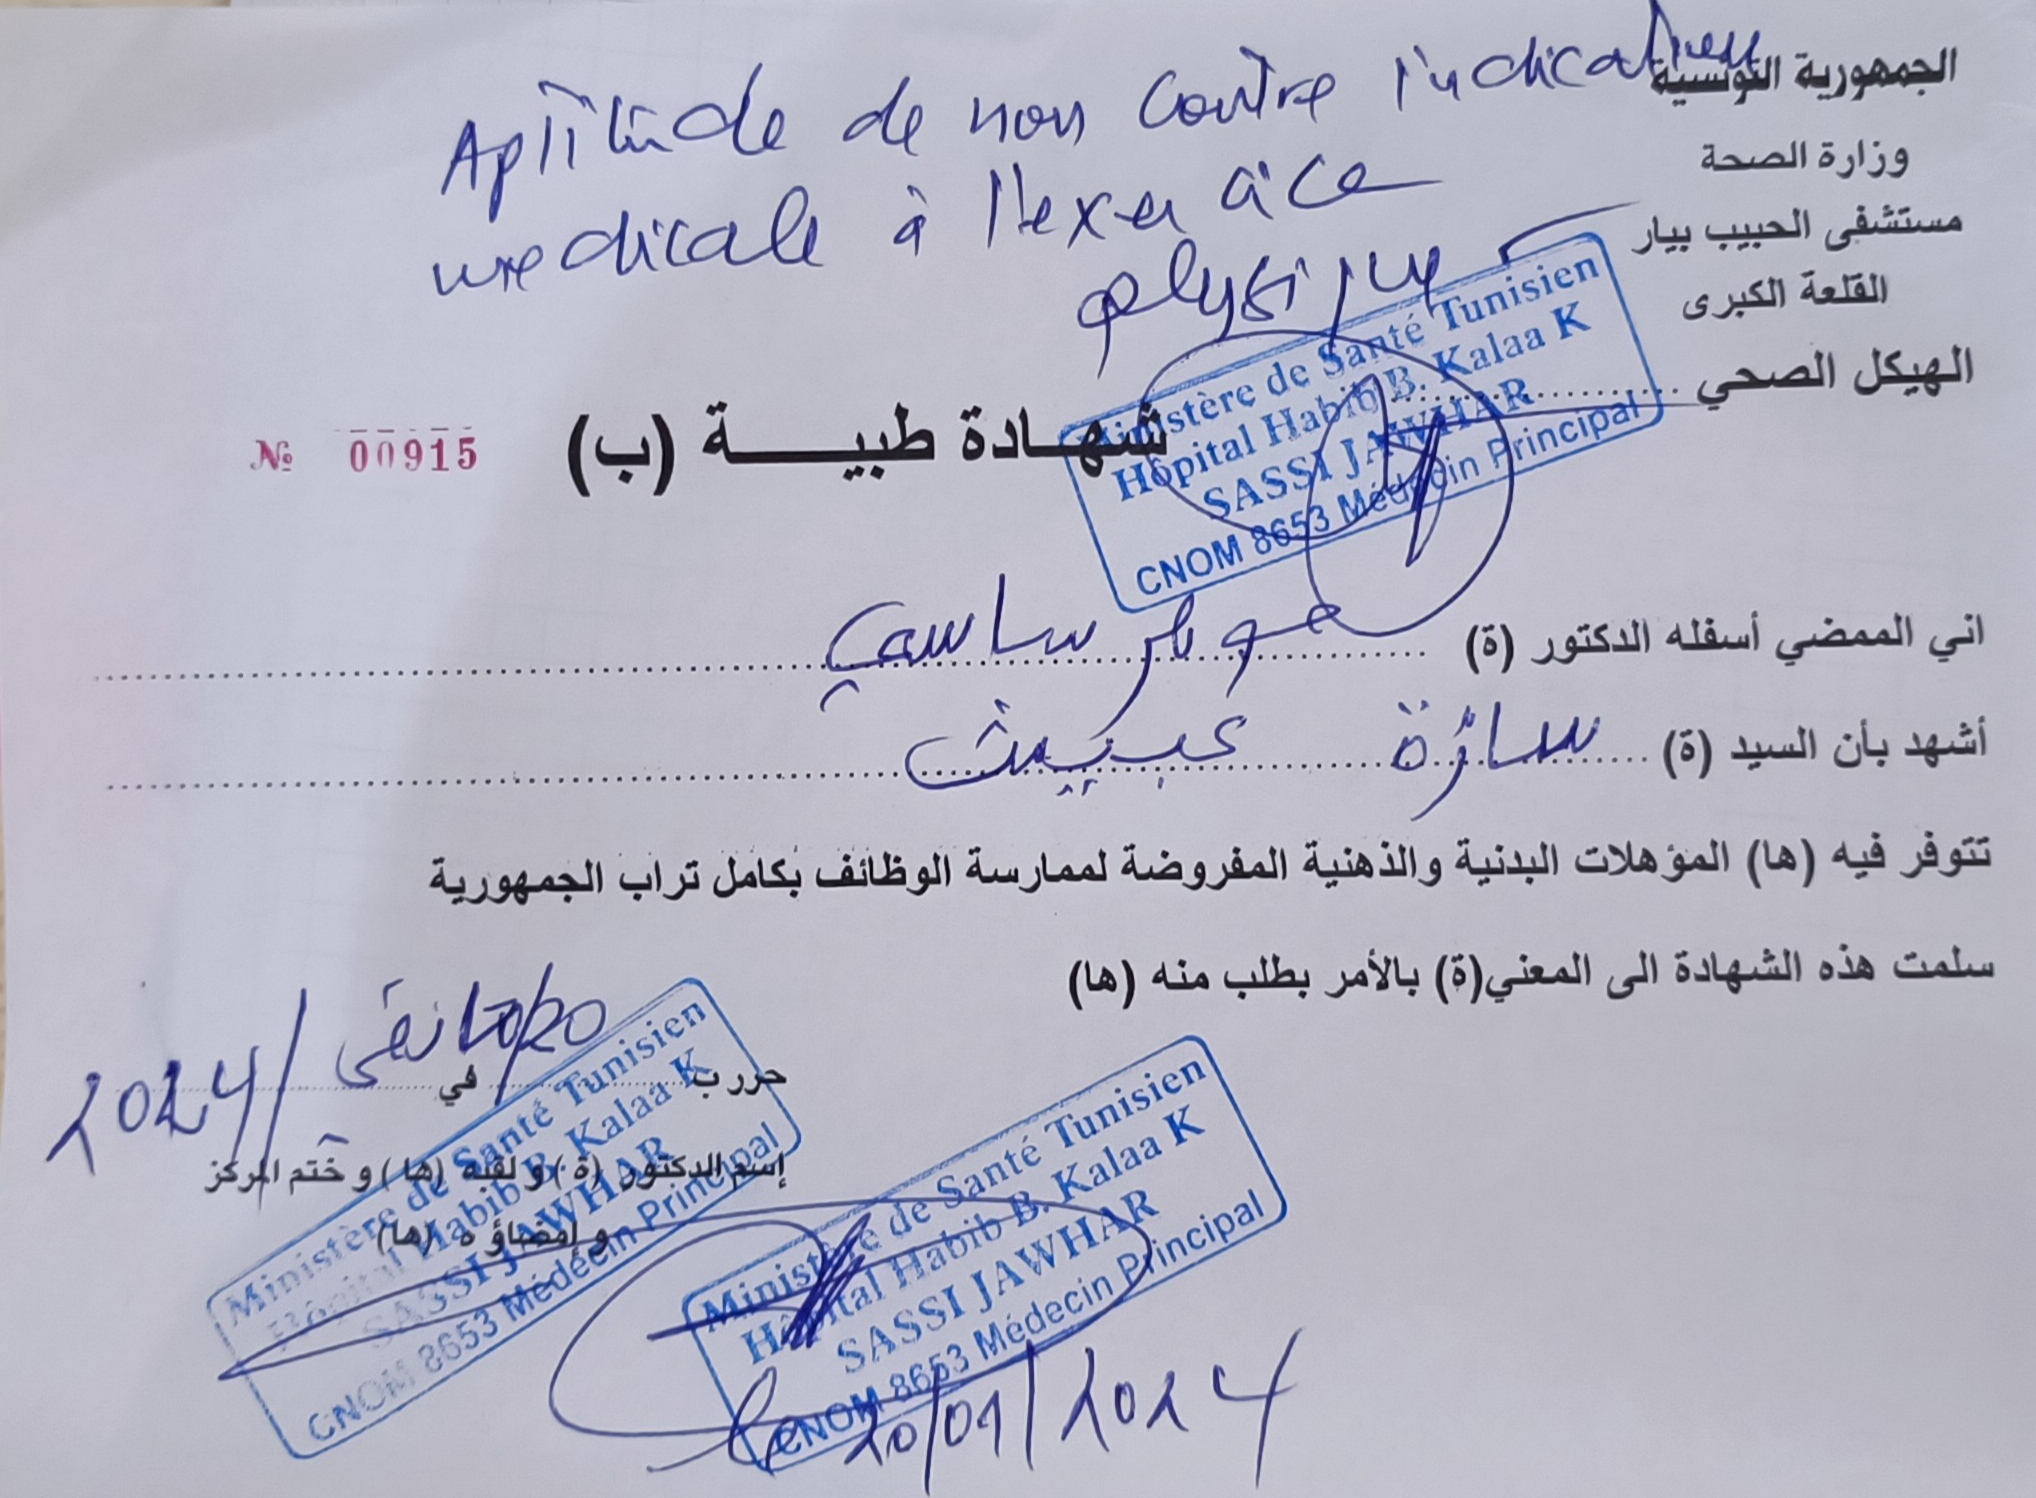 Aptitude de non contre indication
medicale à l'exercice
physique
الجمهورية التونسية
وزارة الصحة
مستشفى الحبيب بيار
القلعة الكبرى
الهيكل الصحي
Ministère de Santé Tunisien
Hôpital Habib B. Kalaa K
SASSI JAWHAR
CNOM 8653 Médecin Principal
شهادة طبية (ب)
№ 00915
اني الممضي أسفله الدكتور (ة) جوهر ساسي
أشهد بأن السيد (ة) سارة
تتوفر فيه (ها) المؤهلات البدنية والذهنية المفروضة لممارسة الوظائف بكامل تراب الجمهورية
سلمت هذه الشهادة الى المعني(ة) بالأمر بطلب منه (ها)
حرر ب في 20/جانفي/2024
إسم الدكتور (ة) و لقبه (ها) و ختم المركز
و إمضاؤه (ها)
Ministère de Santé Tunisien
Hôpital Habib B. Kalaa K
SASSI JAWHAR
CNOM 8653 Médecin Principal
Ministère de Santé Tunisien
Hôpital Habib B. Kalaa K
SASSI JAWHAR
CNOM 8653 Médecin Principal
le 20/01/2024